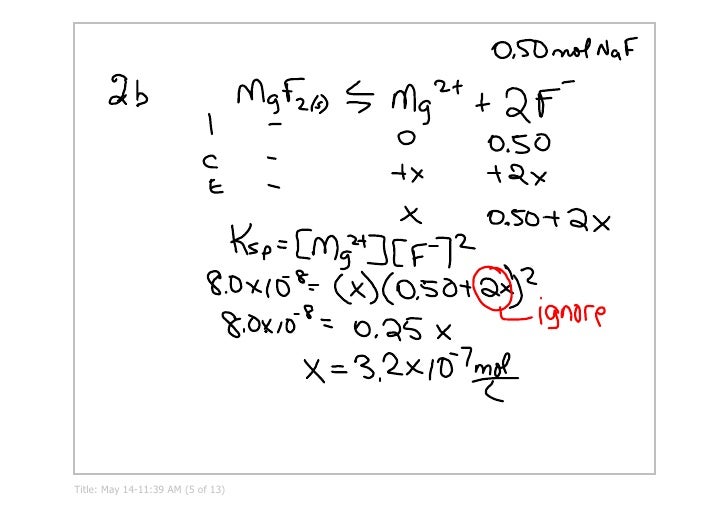 0.50 mol NaF
2b MgF₂(s) ⇆ Mg²⁺ + 2F⁻
I - 0 0.50
C - +x +2x
E - x 0.50+2x
Ksp = [Mg²⁺][F⁻]²
8.0x10⁻⁸ = (x)(0.50+2x)²
ignore
8.0x10⁻⁸ = 0.25 x
x = 3.2x10⁻⁷ mol/L
Title: May 14-11:39 AM (5 of 13)